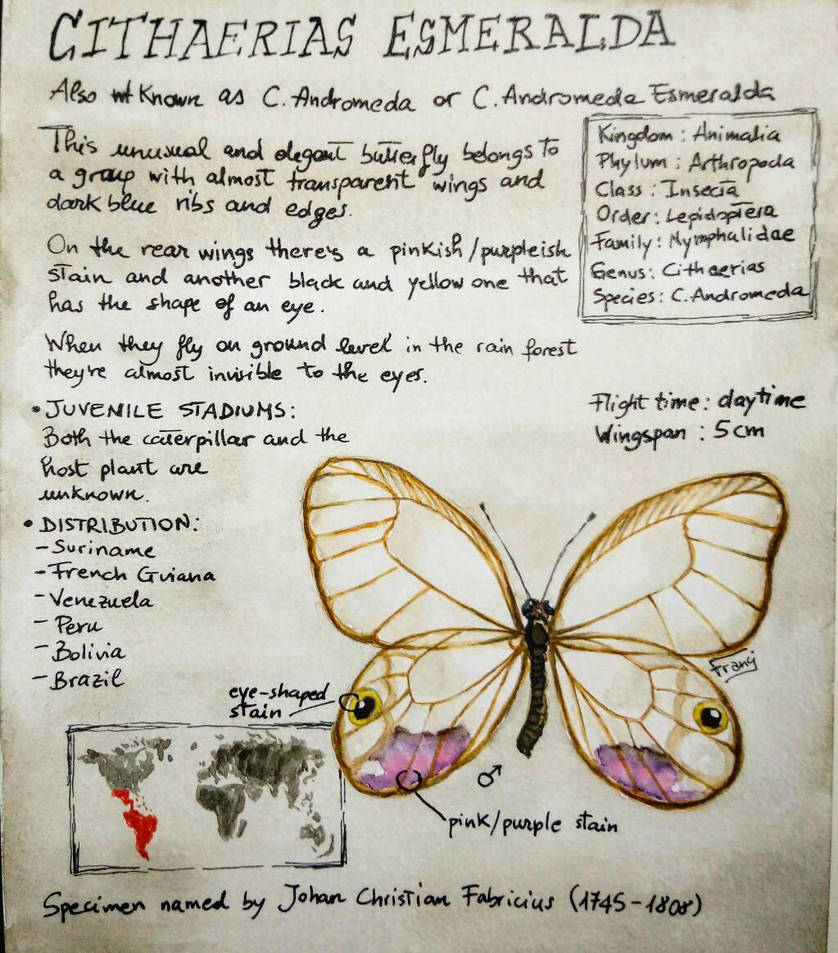 CITHAERIAS ESMERALDA
Also Known as C. Andromeda or C. Andromeda Esmeralda
This unusual and elegant butterfly belongs to
a group with almost transparent wings and
dark blue ribs and edges.
On the rear wings there's a pinkish/purpleish
stain and another black and yellow one that
has the shape of an eye.
When they fly on ground level in the rain forest
they're almost invisible to the eyes.
Kingdom: Animalia
Phylum: Arthropoda
Class: Insecta
Order: Lepidoptera
Family: Nymphalidae
Genus: Cithaerias
Species: C. Andromeda
Flight time: daytime
Wingspan: 5cm
• JUVENILE STADIUMS:
Both the caterpillar and the
host plant are
unknown.
• DISTRIBUTION:
- Suriname
- French Guiana
- Venezuela
- Peru
- Bolivia
- Brazil
eye-shaped
stain
Franj
♂
pink/purple stain
Specimen named by Johan Christian Fabricius (1745-1808)